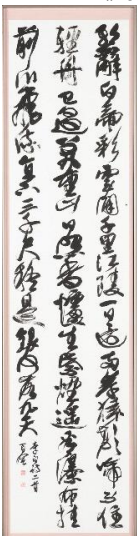 朝辭白帝彩雲間千里江陵一日還兩岸猿聲啼不住
輕舟已過萬重山日照香爐生紫煙遙看瀑布挂
前川飛流直下三千尺疑是銀河落九天 李白詩二首